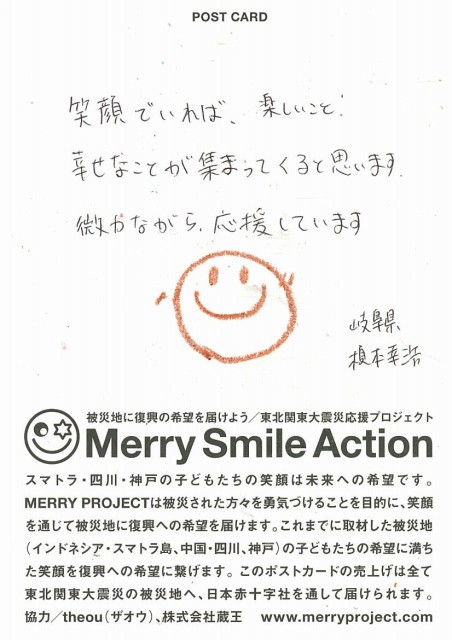 POST CARD
笑顔でいれば、楽しいこと!
幸せなことが集まってくると思います.
微力ながら、応援しています
岐阜県
榎本幸浩
被災地に復興の希望を届けよう/東北関東大震災応援プロジェクト
Merry Smile Action
スマトラ・四川・神戸の子どもたちの笑顔は未来への希望です。
MERRY PROJECTは被災された方々を勇気づけることを目的に、笑顔
を通じて被災地に復興への希望を届けます。これまでに取材した被災地
(インドネシア・スマトラ島、中国・四川、神戸)の子どもたちの希望に満ち
た笑顔を復興への希望に繋げます。このポストカードの売上げは全て
東北関東大震災の被災地へ、日本赤十字社を通して届けられます。
協力/theou(ザオウ)、株式会社蔵王 www.merryproject.com